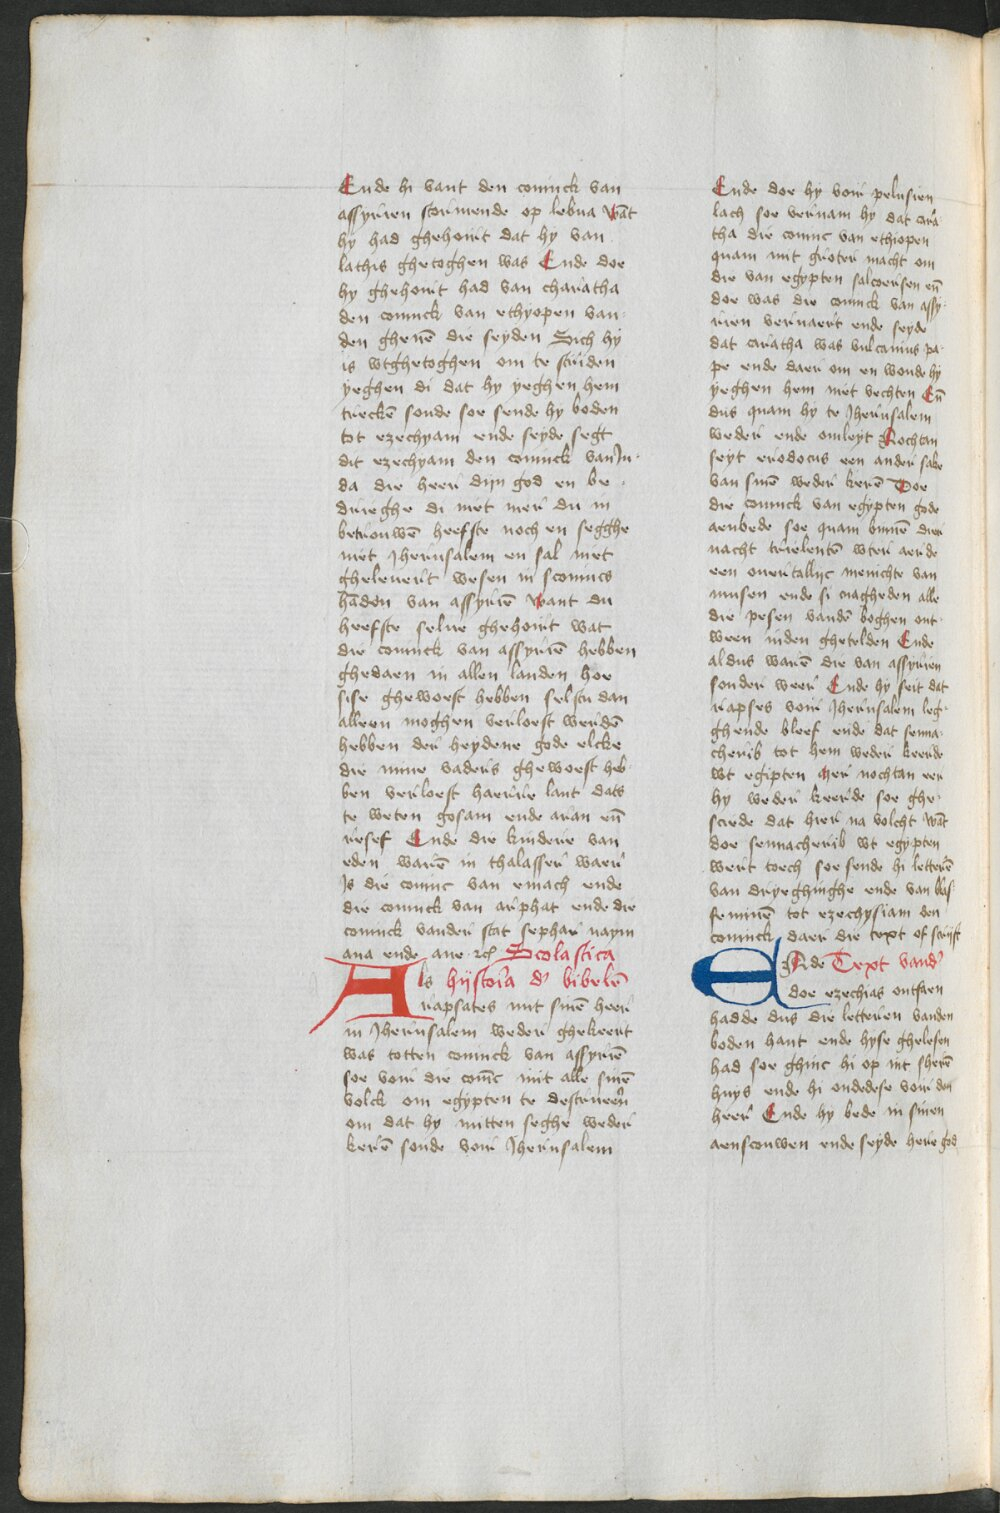 Ende hi vant den coninck van
assyrien stormende op lebna wãt
hy had ghehoirt dat hy van
lathis ghetoghen was Ende doe
hy ghehoirt had van charatha
den coninck van ethyopen van
den ghenẽ die seyden Sich hy
is wtghetoghen om te striden
yeghen di dat hy yeghen hem
treckẽ soude soe sende hy boden
tot ezechyam ende seyde segt
dit ezechyam den coninck van Ju-
da die heer dijn god en be-
drieghe di niet mer du in
betrouwẽ heefste noch en segghe
niet Jherusalem en sal niet
gheleuert wesen in sconincs
hãden van assyriẽ want du
heefste selue ghehoirt wat
die coninck van assyriẽ hebben
ghedaen in allen landen hoe
sise ghewoest hebben selstu dan
alleen moghen verloest werdẽ
hebben der heydene gode elcke
die mine vaders ghewoest heb-
ben verloest haerre lant dats
te weten gosam ende aran eñ
resef Ende die kindere van
eden warẽ in thalasser waer
Is die coninc van emach ende
die coninck van arphat ende die
coninck vander stat sephar naym
ana ende aue ⁊cẽ Scolastica
Als hijstoria d' bibelẽ
rapsates mit sinẽ heer
in Jherusalem weder ghekeert
was totten coninck van assyriẽ
soe voir die conĩc mit alle sinẽ
volck om egypten te destrueẽr
om dat hy mitten seghe weder
kerẽ soude voir Jherusalem
Ende doe hy voir pelusien
lach soe vernam hy dat cara
tha die coninc van ethiopen
quam mit groter macht om
die van egypten salcoersen eñ
doe was die coninck van assy-
rien vervaert ende seyde
dat caratha was vulcanius pa-
pe ende daer om en woude hy
yeghen hem niet vechten Eñ
dus quam hy te Jherusalem
weder ende omleyt Nochtan
seyt erodocus een ander sake
van sinẽ weder kerẽ Doe
die coninck van egypten gode
aenbede soe quam binnẽ dier
nacht trielentẽ wter aerde
een ouertallijc menichte van
musen ende si cnagheden alle
die pesen vandẽ boghen ont-
ween inden ghetelden Ende
aldus warẽ die van assyrien
sonder weer Ende hy seit dat
rapses voir Jherusalem leg-
ghende bleef ende dat senna-
cherib tot hem weder keerde
wt egipten Mer nochtan eer
hy weder keerde soe ghe-
sciede dat hier na volcht wãt
doe sennacherib wt egypten
wert toech soe sende hi letterẽ
van dryeghinghe ende van blas-
feminẽ tot ezechysiam den
coninck daer die text of scrijft
ENde Text vand'
doe ezechias ontfaen
hadde dus die letteren vanden
boden hant ende hyse ghelesen
had soe ghinc hi op int sherẽ
huys ende hi ondedese voir den
heer Ende hy bede in sinen
aenscouwen ende seyde here god